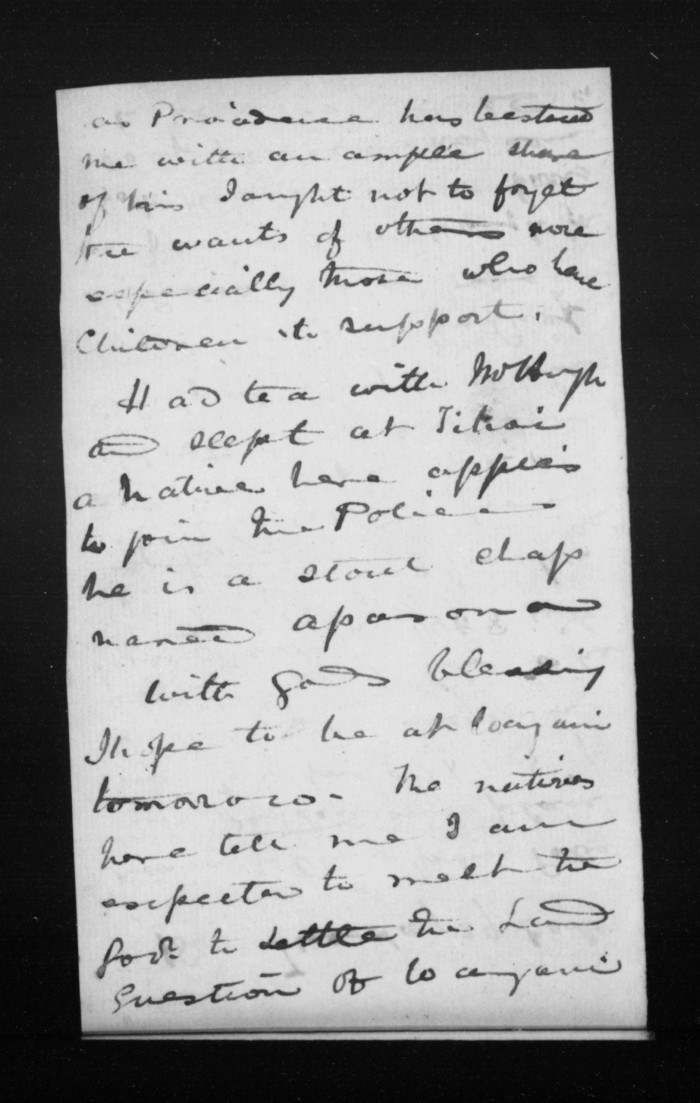 as Providence has bestowed
me with an ample share
of his I aught not to forget
the wants of others more
especially those who have
Children to support.
Had tea with McHugh
and slept at Tikai
a native here applies
to join the Police
he is a stout chap
named
with gods blessing
I hope to be at Wangani
tomorow - the natives
here tell me I am
expected to meet the
Govr. to settle the Land
Question of Wangani